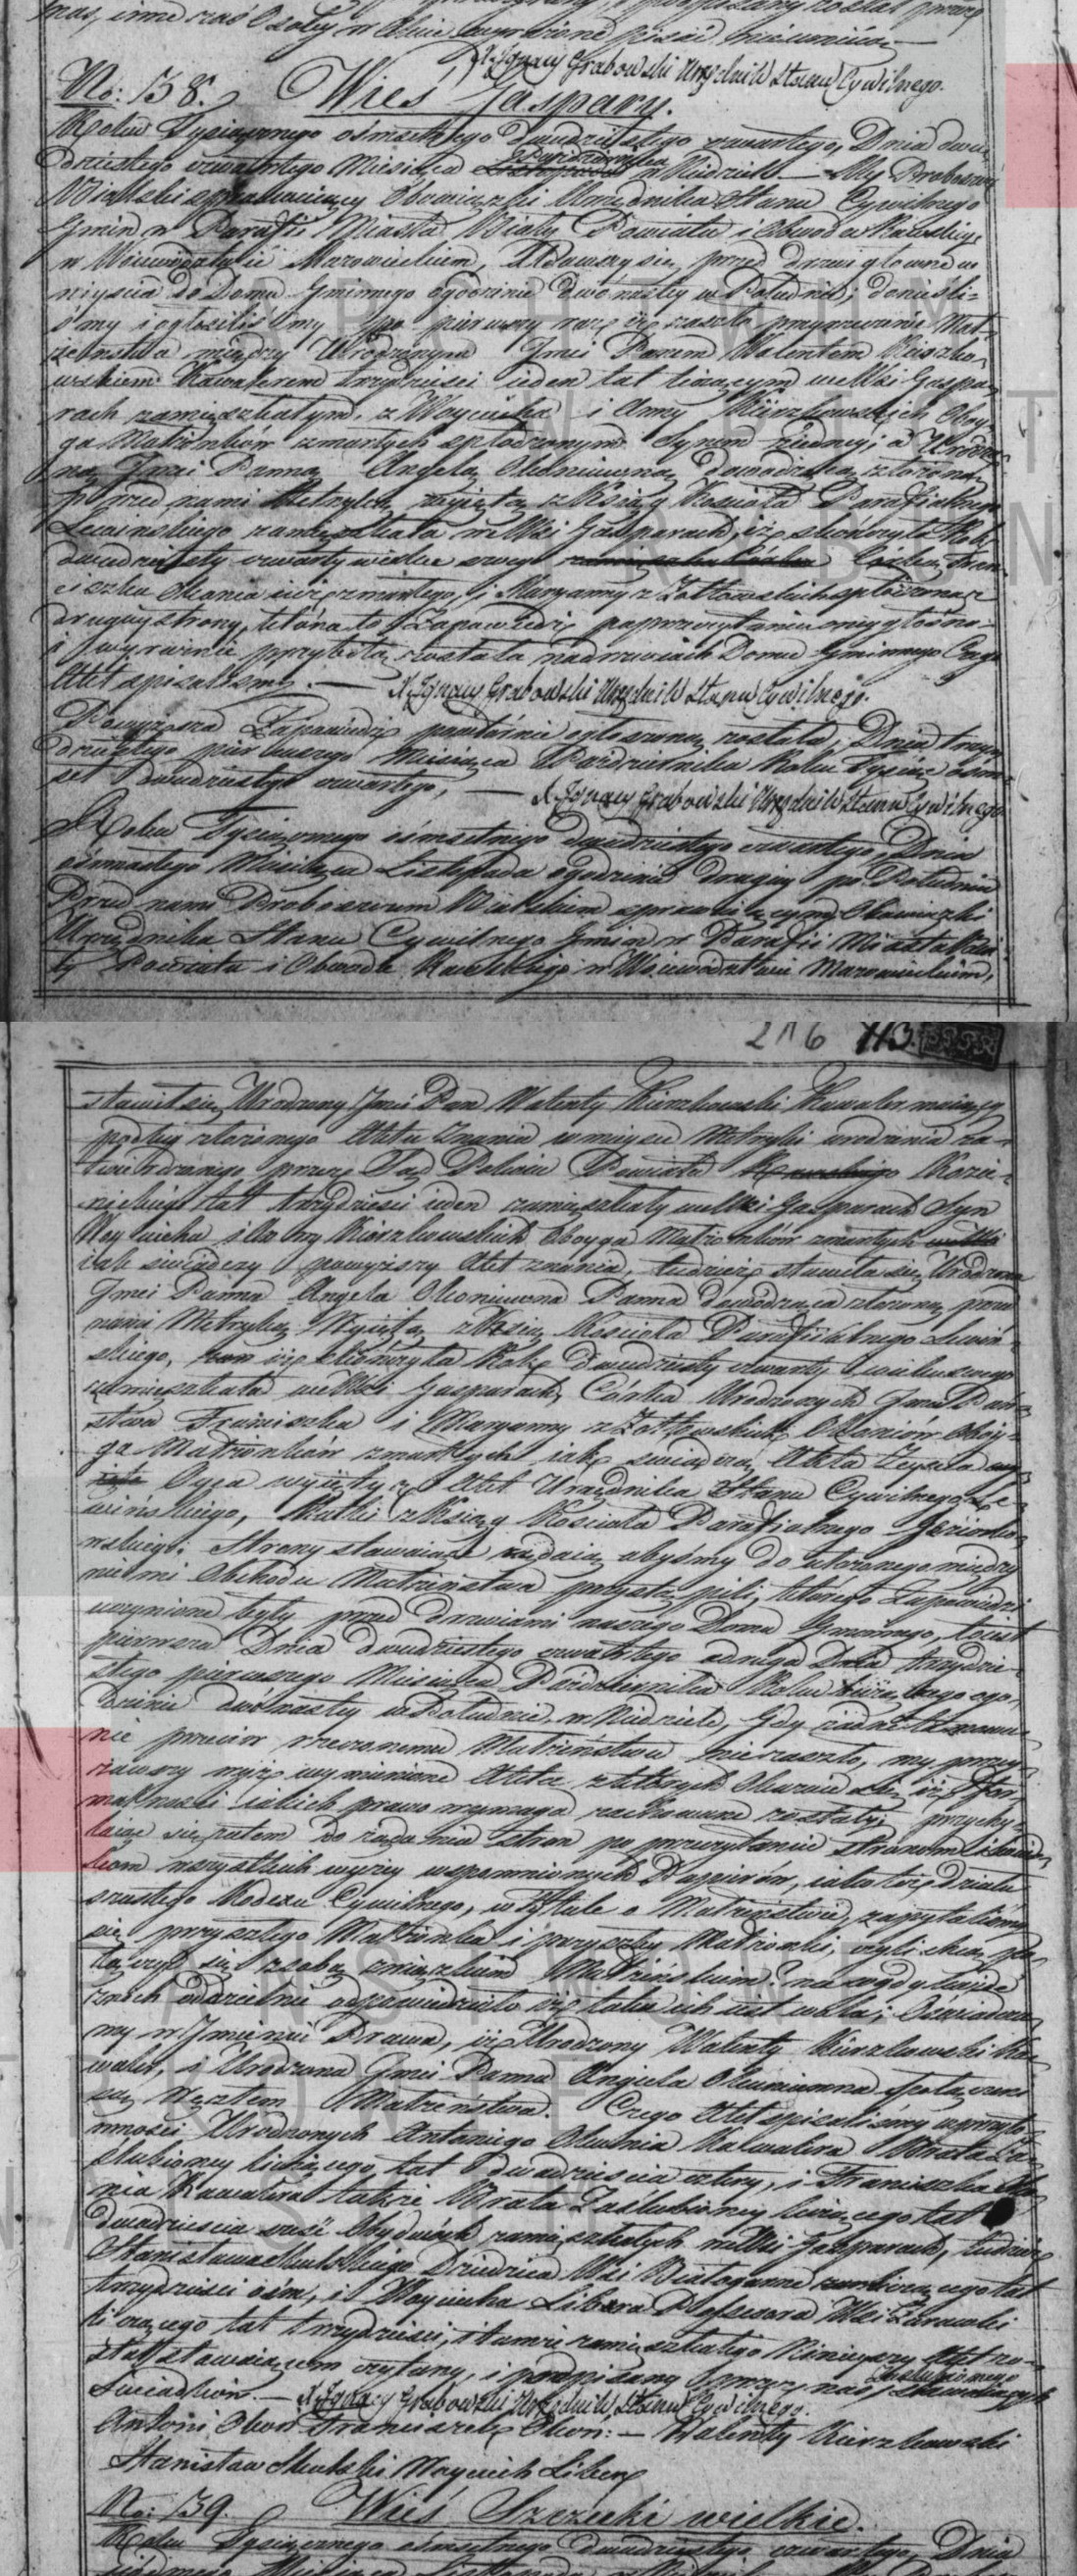 nas, inne zaś Osoby w Akcie wyrażone pisać nieumieią.
X. Ignacy Grabowski Urzędnik Stanu Cywilnego.
No: 138. Wieś Gaspary.
Roku Tysiącznego ośmsetnego dwudziestego czwartego, Dnia dwu-
dziestego czwartego Miesiąca Października w Niedzielę — My Proboszcz
Bialski sprawuiący Obowiązki Urzędnika Stanu Cywilnego
Gmin w Parafii Miasta Biały Powiatu i Obwodu Rawskiego
w Woiewództwie Mazowieckiem, Udawszy się przed drzwi główne w
niyścia do Domu Gminnego ogodzinie dwónasty w Południe; donieśli-
śmy i ogłosiliśmy po pierwszy raz iż zaszło przyrzeczenie Mał-
żeństwa między Urodzonym Jmci Panem Walentem Kierzko-
wskiem Kawalerem trzydzieści ieden lat liczącym w Wsi Gaspa-
rach zamieszkałym, z Woyciecha i Anny Kierzkowskich Oboy-
ga Małżonków zmarłych spłodzonym Synem z iedney; a Urodzo-
ną Jmci Panną Angelą Okoniówną dowodzącą złożoną
przed nami Metryką wyiętą z Ksiąg Kościoła Parafialnego
Lewinskiego zamieszkała w Wsi Gasparach, iż skończyła Rok
dwudziesty czwarty wieku swego Córką Fran-
ciszka Okonia iuż zmarłego, i Maryanny z Żółtowskich spłodzoną z
drugiey strony, która to Zapowiedź po przeczytaniu oney głośno
i wyraźnie przybitą została na drzwiach Domu Gminnego Czego
Akt spisaliśmy. — X. Ignacy Grabowski Urzędnik Stanu Cywilnego.
Powyższa Zapowiedź powtórnie ogłoszoną została, Dnia trzy-
dziestego pierwszego Miesiąca Października Roku Tysiąc ośm-
set dwudziestego czwartego, — X. Ignacy Grabowski Urzędnik Stanu Cywilnego
Roku Tysiącznego ośmsetnego dwudziestego czwartego, Dnia
ośmnastego Miesiąca Listopada ogodzinie drugiey po Południu
Przed nami Proboszczem Bialskiem sprawuiącym Obowiązki
Urzędnika Stanu Cywilnego Gmin w Parafii Miasta Bia-
ły Powiatu i Obwodu Rawskiego w Woiewództwie Mazowieckiem,
216 113.
stawił się Urodzony Jmci Pan Walenty Kierzkowski Kawaler maiący
podług złożonego Aktu Znania w mieysce Metryki urodzenia za-
twierdzonego przez Sąd Pokoiu Powiatu Kozie-
nickiego lat trzydzieści ieden zamieszkały w Wsi Gasparach Syn
Woyciecha i Anny Kierzkowskich Oboyga Małżonków zmarłych
iak świadczy powyższy Akt znania, tudzież stawiła się Urodzona
Jmci Panna Angela Okoniuwna Panna dowodząca złożoną przed
nami Metryką Wyiętą z Ksiąg Kościoła Parafialnego Lewin-
skiego, iż skończyła Rok dwudziesty czwarty wieku swego
zamieszkała w Wsi Gasparach, Córka Urodzonych Jmci Pań-
stwa Franciszka i Maryanny z Żółtowskich Okoniów Oboy-
ga Małżonków zmarłych iak świadczą Akta Zeyścia
Oyca wyięty z Akt Urzędnika Stanu Cywilnego Le-
wińskiego, Matki z Ksiąg Kościoła Parafialnego Jeziorko-
wskiego. Strony stawaiące żądaią abyśmy do ułożonego między
niemi Obchodu Małżeństwa przystąpili, którego Zapowiedzi
uczynione były przed drzwiami naszego Domu Gminnego, to iest
pierwsza Dnia dwudziestego czwartego a druga Dnia trzydzie-
stego pierwszego Miesiąca Października Roku bieżącego ogo-
dzinie dwónasty w Południe, w Niedzielę, Gdy żadne tamowa-
nie przeciw rzeczonemu Małżeństwu nie zaszło, my przey-
rzawszy wyż wymienione Akta z których Okazuie się iż For-
malności iakich prawo wymaga zachowane zostały, przychy-
laiąc się zatem do żądania stron po przeczytaniu stronom i świad-
kom wszystkich wyżey wspomnionych Papierów, iako też działu
szóstego Kodexu Cywilnego, w Tytule o Małżeństwie, zapytaliśmy
się przyszłego Małżonka i przyszłey Małżonki, czyli chcą po-
łączyć się z sobą związkiem Małżeńskiem? na co gdy każde
z nich oddzielnie odpowiedziało iż taka ich iest wola; Oświadcza-
my w Jmieniu Prawa, iż Urodzony Walenty Kierzkowski Ka-
waler, i Urodzona Jmci Panna Angiela Okoniuwna połączeni
są Węzłem Małżeństwa. Czego Akt spisaliśmy w przyto-
mności Urodzonych Antoniego Okonia Kawalera Brata Za-
ślubioney liczącego lat dwadzieścia cztery, i Franciszka Oko-
nia Kawalera także Brata Zaślubioney liczącego lat
dwadzieścia sześć Obydwóch zamieszkałych w Wsi Gasparach, tudzież
Stanisława Skulskiego Dziedzica Wsi Białogórne liczącego lat
trzydzieści ośm, i Woyciecha Libera Possesora Wsi Zarawski
liczącego lat trzydzieści, tamże zamieszkałego Ninieyszy Akt zo-
stał stawaiącem czytany, i podpisany przez nas, Zaślubionego
Świadków. — X. Ignacy Grabowski Urzędnik Stanu Cywilnego.
Antoni Okoń Franciszek Okon: — Walenty Kierzkowski
Stanisław Skulski Woyciech Libera
No: 139. Wieś Szczuki wielkie.
Roku Tysiącznego ośmsetnego dwudziestego czwartego, Dnia